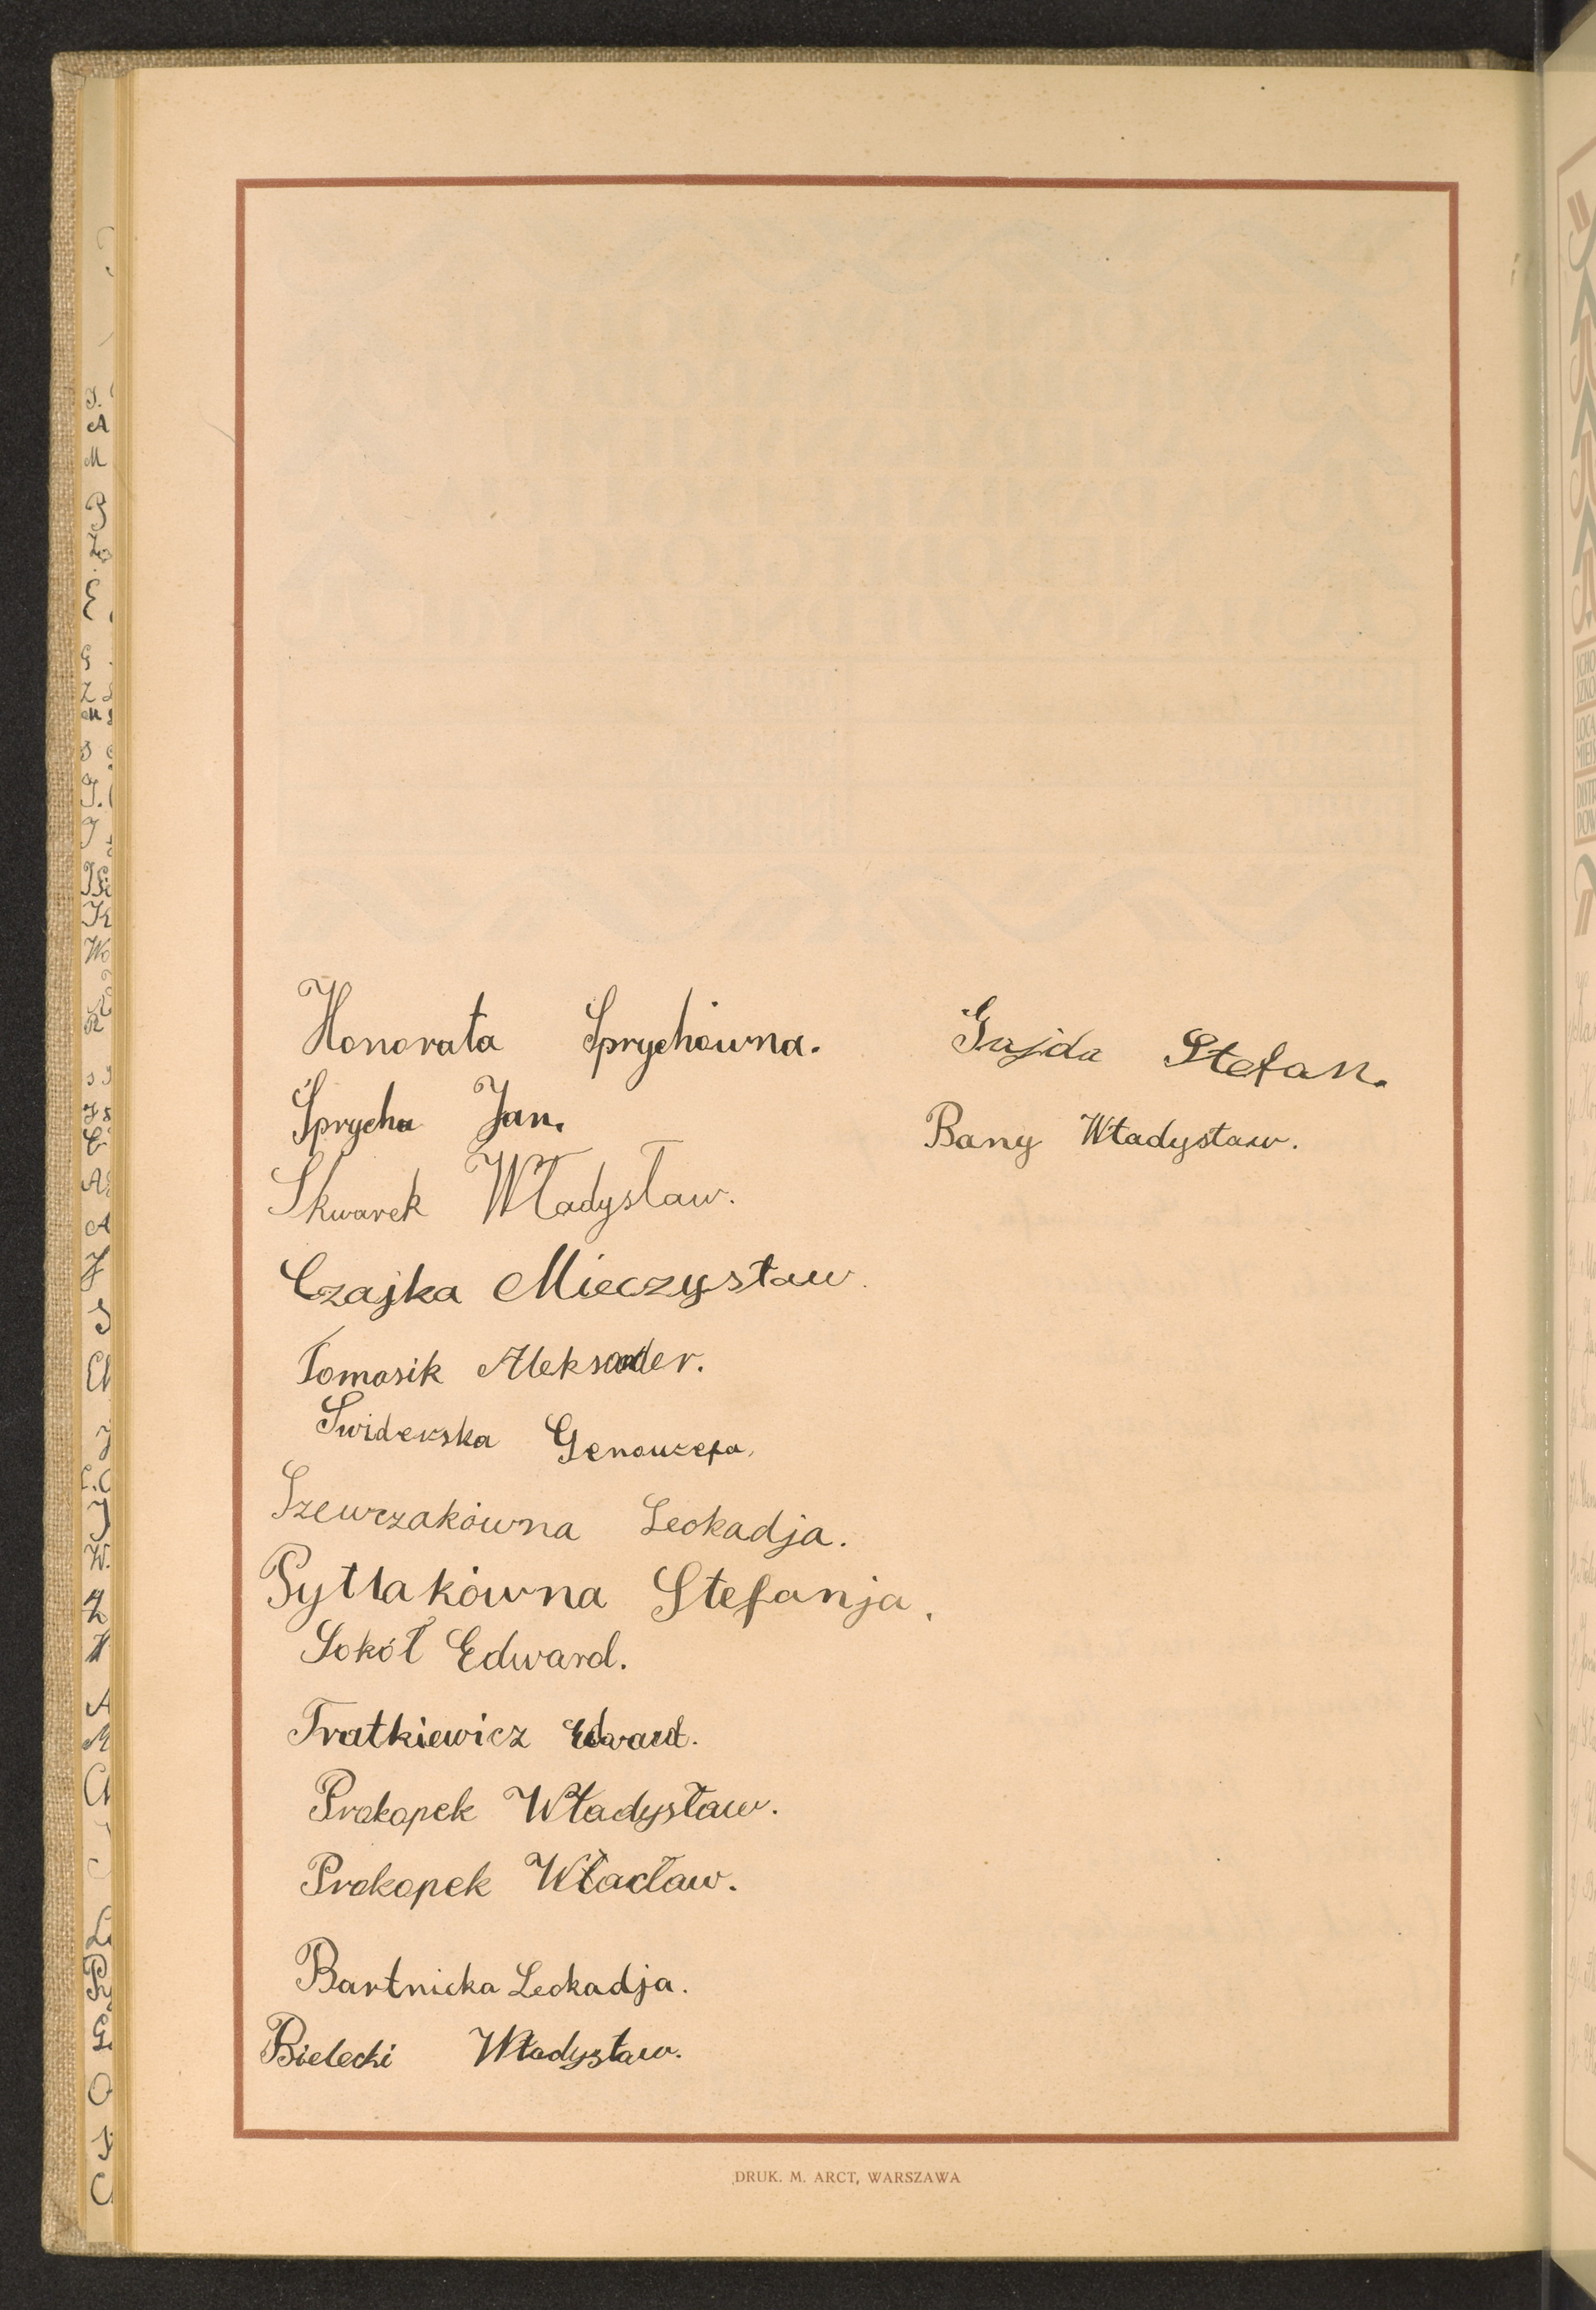 Honorata Sprychówna.
Sprycha Jan.
Skwarek Władysław.
Czajka Mieczysław.
Tomasik Aleksander.
Świderska Genowefa.
Szewczakówna Leokadja.
Pytlakówna Stefanja.
Sokół Edward.
Tratkiewicz Edward.
Prokopek Władysław.
Prokopek Włacław.
Bartnicka Leokadja.
Bielecki Władysław.
Gajda Stefan.
Bany Władysław.
DRUK. M. ARCT, WARSZAWA